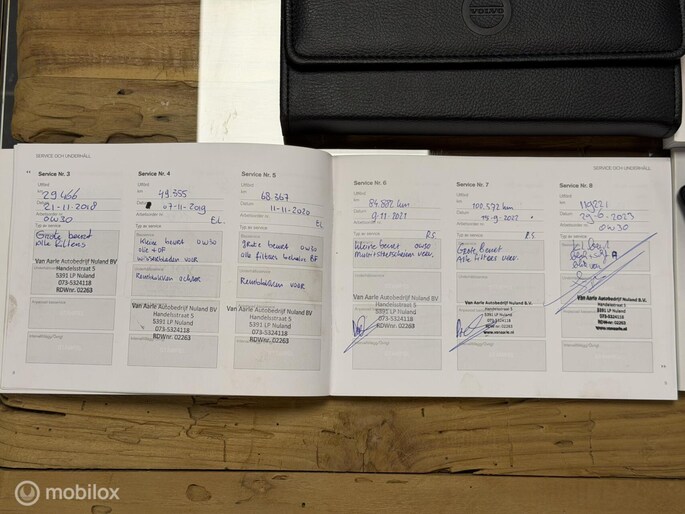 VOLVO
SERVICE OCH UNDERHÅLL
Service Nr. 3
Utförd
km
29466
Datum
21-11-2018
Arbetsorder nr.
0W30
Typ av service
Grote beurt
alle filters
Van Aarle Autobedrijf Nuland BV
Handelsstraat 5
5391 LP Nuland
073-5324118
RDWnr. 02263
Service Nr. 4
Utförd
km
49.355
Datum
07-11-2019
Arbetsorder nr.
EL
Typ av service
Kleine beurt 0W30
olie + OF
wisserbladen voor
Remschijven achter
Van Aarle Autobedrijf Nuland BV
Handelsstraat 5
5391 LP Nuland
073-5324118
RDWnr. 02263
Service Nr. 5
Utförd
km
68.367
Datum
11-11-2020
Arbetsorder nr.
EL
Typ av service
grote beurt 0W30
alle filters behalve BF
Remschijven voor
Van Aarle Autobedrijf Nuland BV
Handelsstraat 5
5391 LP Nuland
073-5324118
RDWnr. 02263
SERVICE OCH UNDERHÅLL
Service Nr. 6
Utförd
km
84.882 km
Datum
9-11-2021
Arbetsorder nr.
RS
Typ av service
Kleine beurt 0W30
Ruitenwisserbladen verv.
Van Aarle Autobedrijf Nuland BV
Handelsstraat 5
5391 LP Nuland
073-5324118
RDWnr. 02263
Service Nr. 7
Utförd
km
102.572 km
Datum
-9-2022
Arbetsorder nr.
RS
Typ av service
Grote Beurt
Alle filters verv.
Van Aarle Autobedrijf Nuland BV
Handelsstraat 5
5391 LP Nuland
073-5324118
RDWnr. 02263
Service Nr. 8
Utförd
km
119221
Datum
29-6-2023
Arbetsorder nr.
0W30
Typ av service
kl Beurt
Van Aarle Autobedrijf Nuland B.V.
Handelsstraat 5
5391 LP Nuland
073-5324118
RDWnr. 02263
www.vanaarle.nl
mobilox